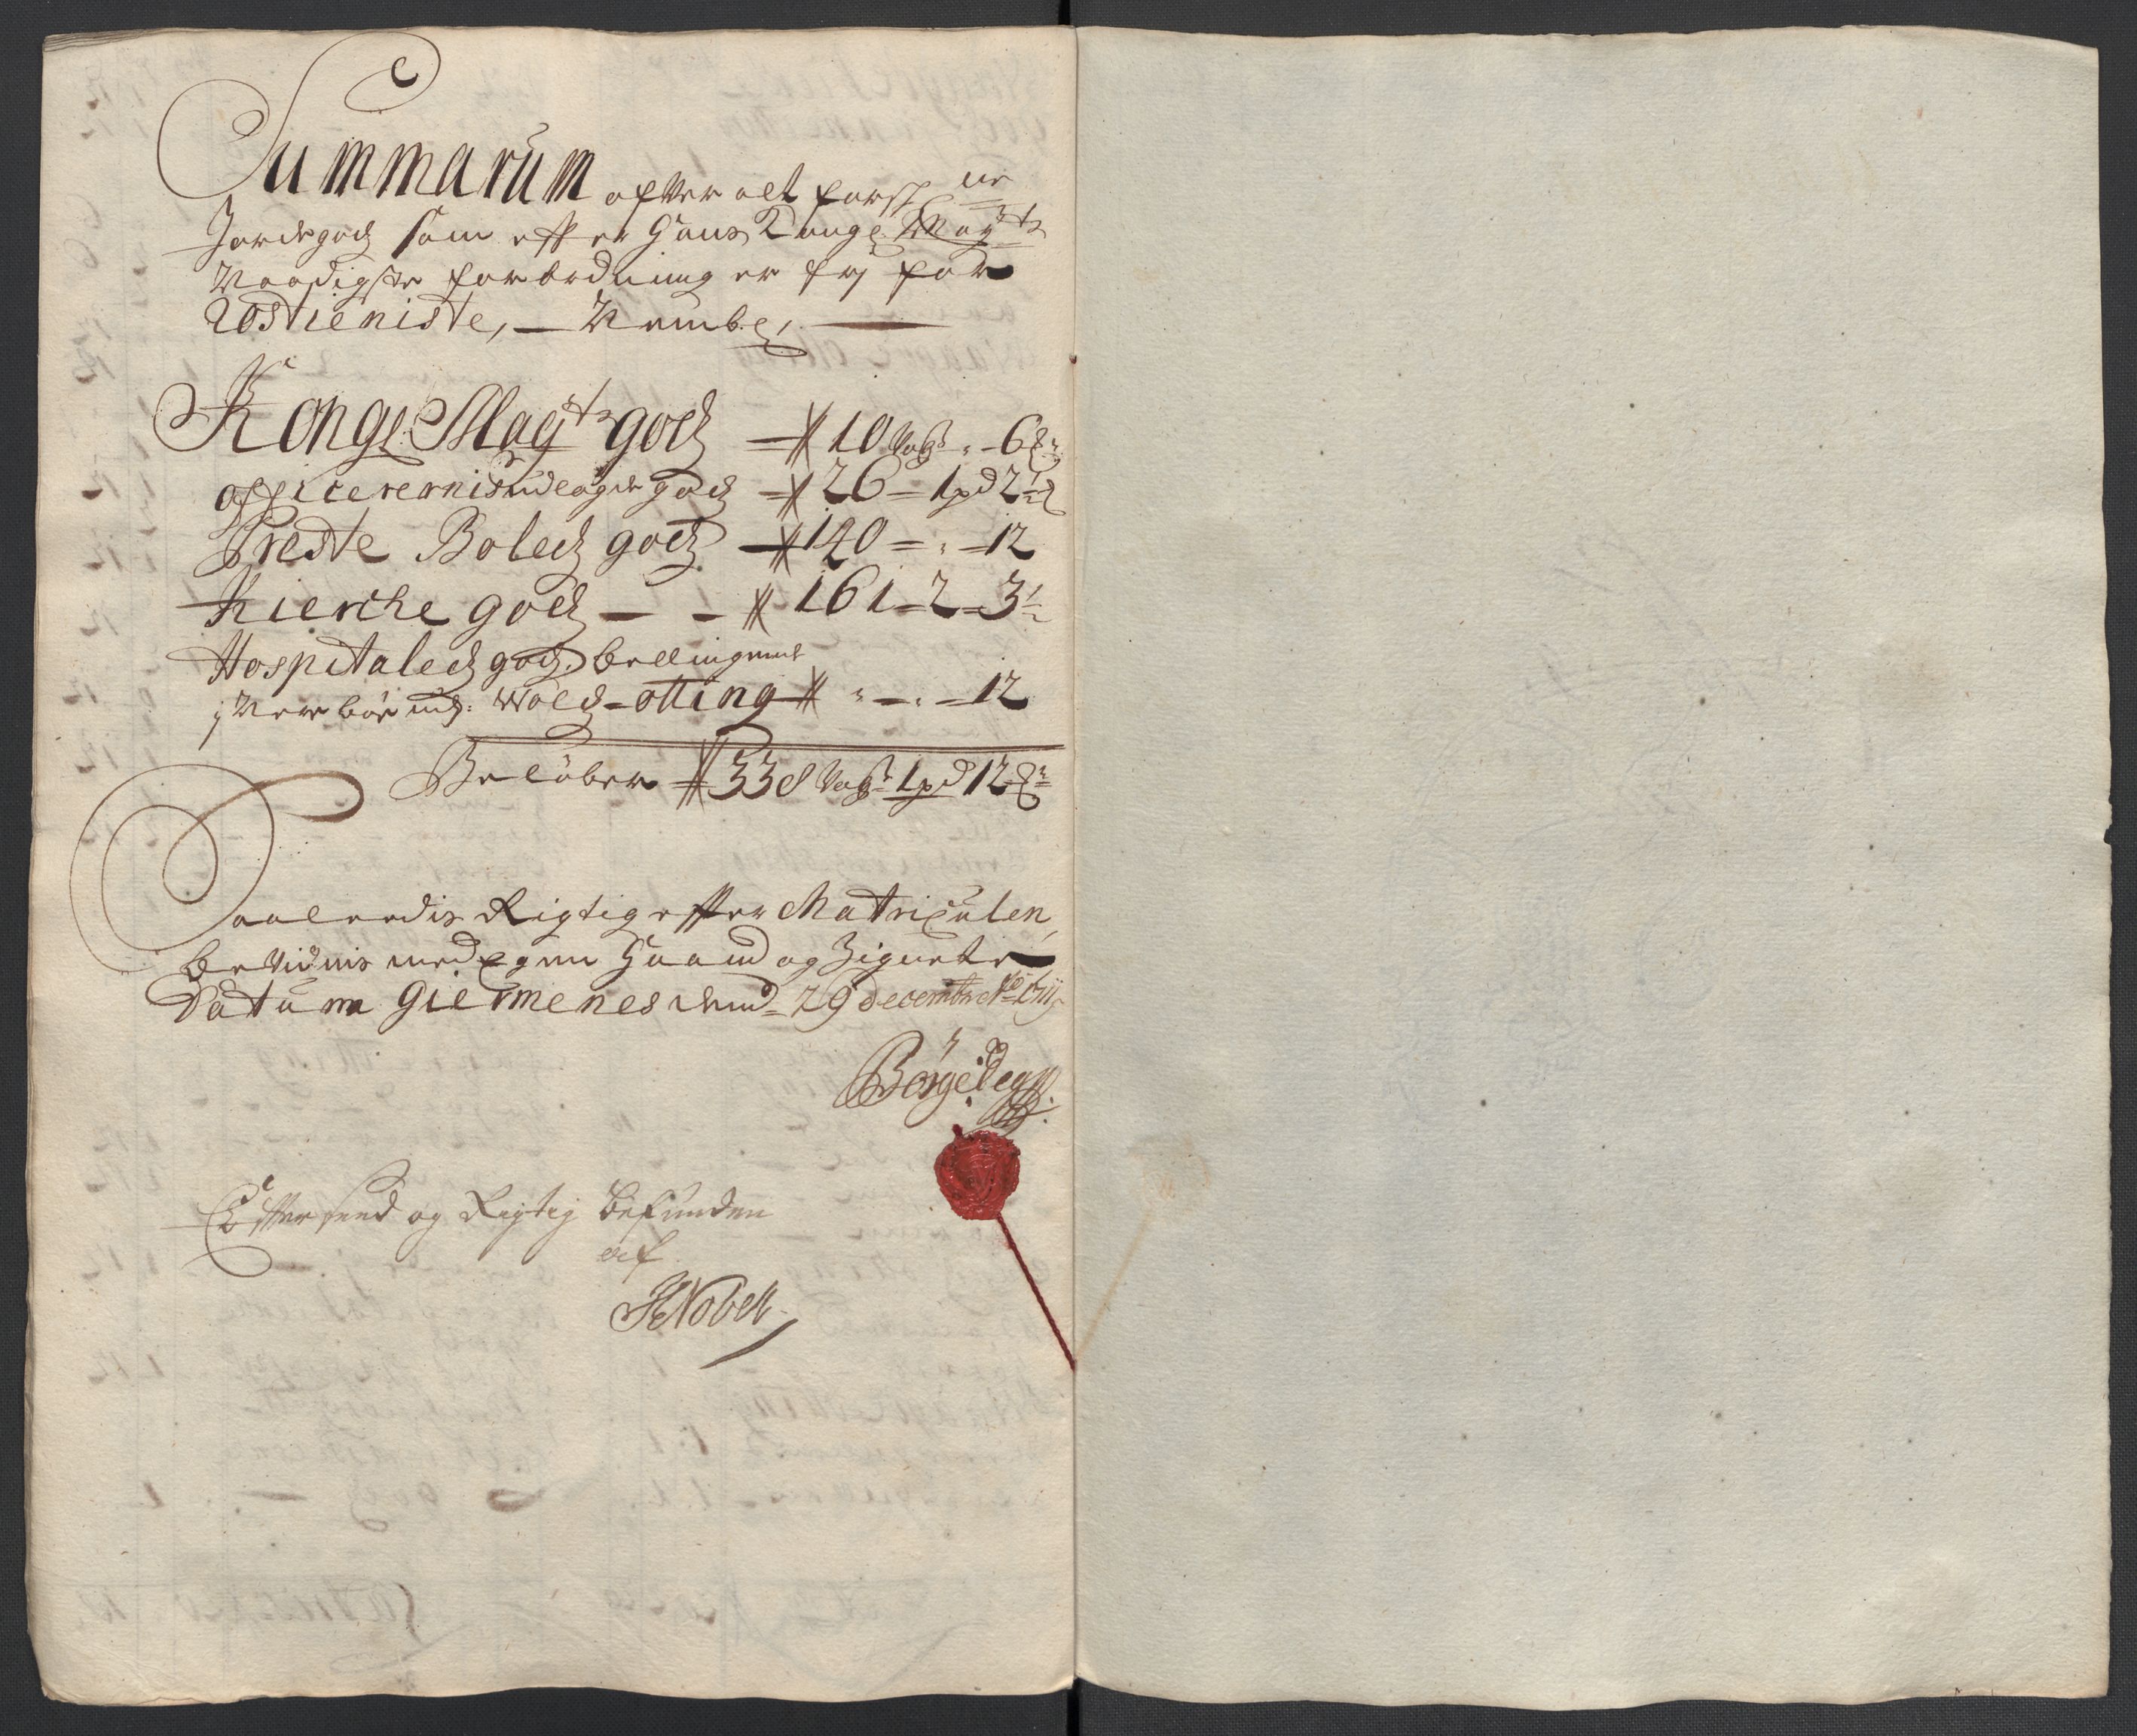 Summarum ofver alt forsk: ne
Jordegods som effter Hans Kongl: Maytz
Naadigste forordning er frj for
Rostieniste, — Nembl,
Kongl: Mayts gods — 10 Vog: " - 6 ℔
officerernis udlagde gods — 26 — 1 pd 2½ ℔
Preste Boleds gods — 140 — " — 12
Kierche gods — — 161 — 2 — 3½
Hospitaleds gods, beliggende
j Wold-otting — " — " — 12
Beløber 338 Vog: 1 pd 12 ℔
Saaledis Rigtig effter Matriculen,
beVidnis med Egen Haand og Zignete
Datum Giermenes dend 29 decembr Ao 1711
Børge
Effterseed og Rigtig befunden
af
HNobell